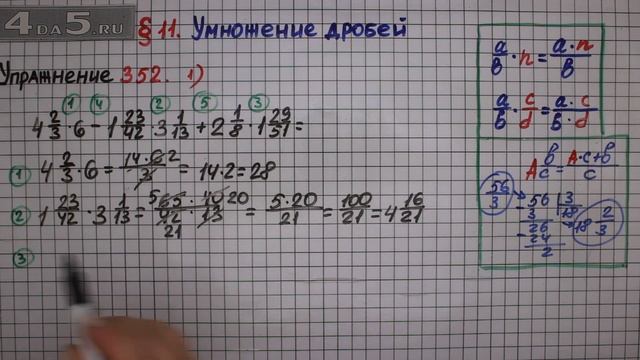 4DA5.RU
§ 11. Умножение дробей
Упражнение 352. 1)
① ④ ② ⑤ ③
4 2/3 · 6 − 1 23/42 · 3 1/13 + 2 1/8 · 1 29/51 =
① 4 2/3 · 6 = 14·6 2/3 = 14 · 2 = 28
② 1 23/42 · 3 1/13 = 5 65 · 40 20/42 · 13 21 = 5·20/21 = 100/21 = 4 16/21
③
a/b · n = a·n/b
a/b · c/d = a·c/b·d
A b/c = A·c+b/c
56/3
56 | 3
3 | 18
26
− 24
2
18 2/3